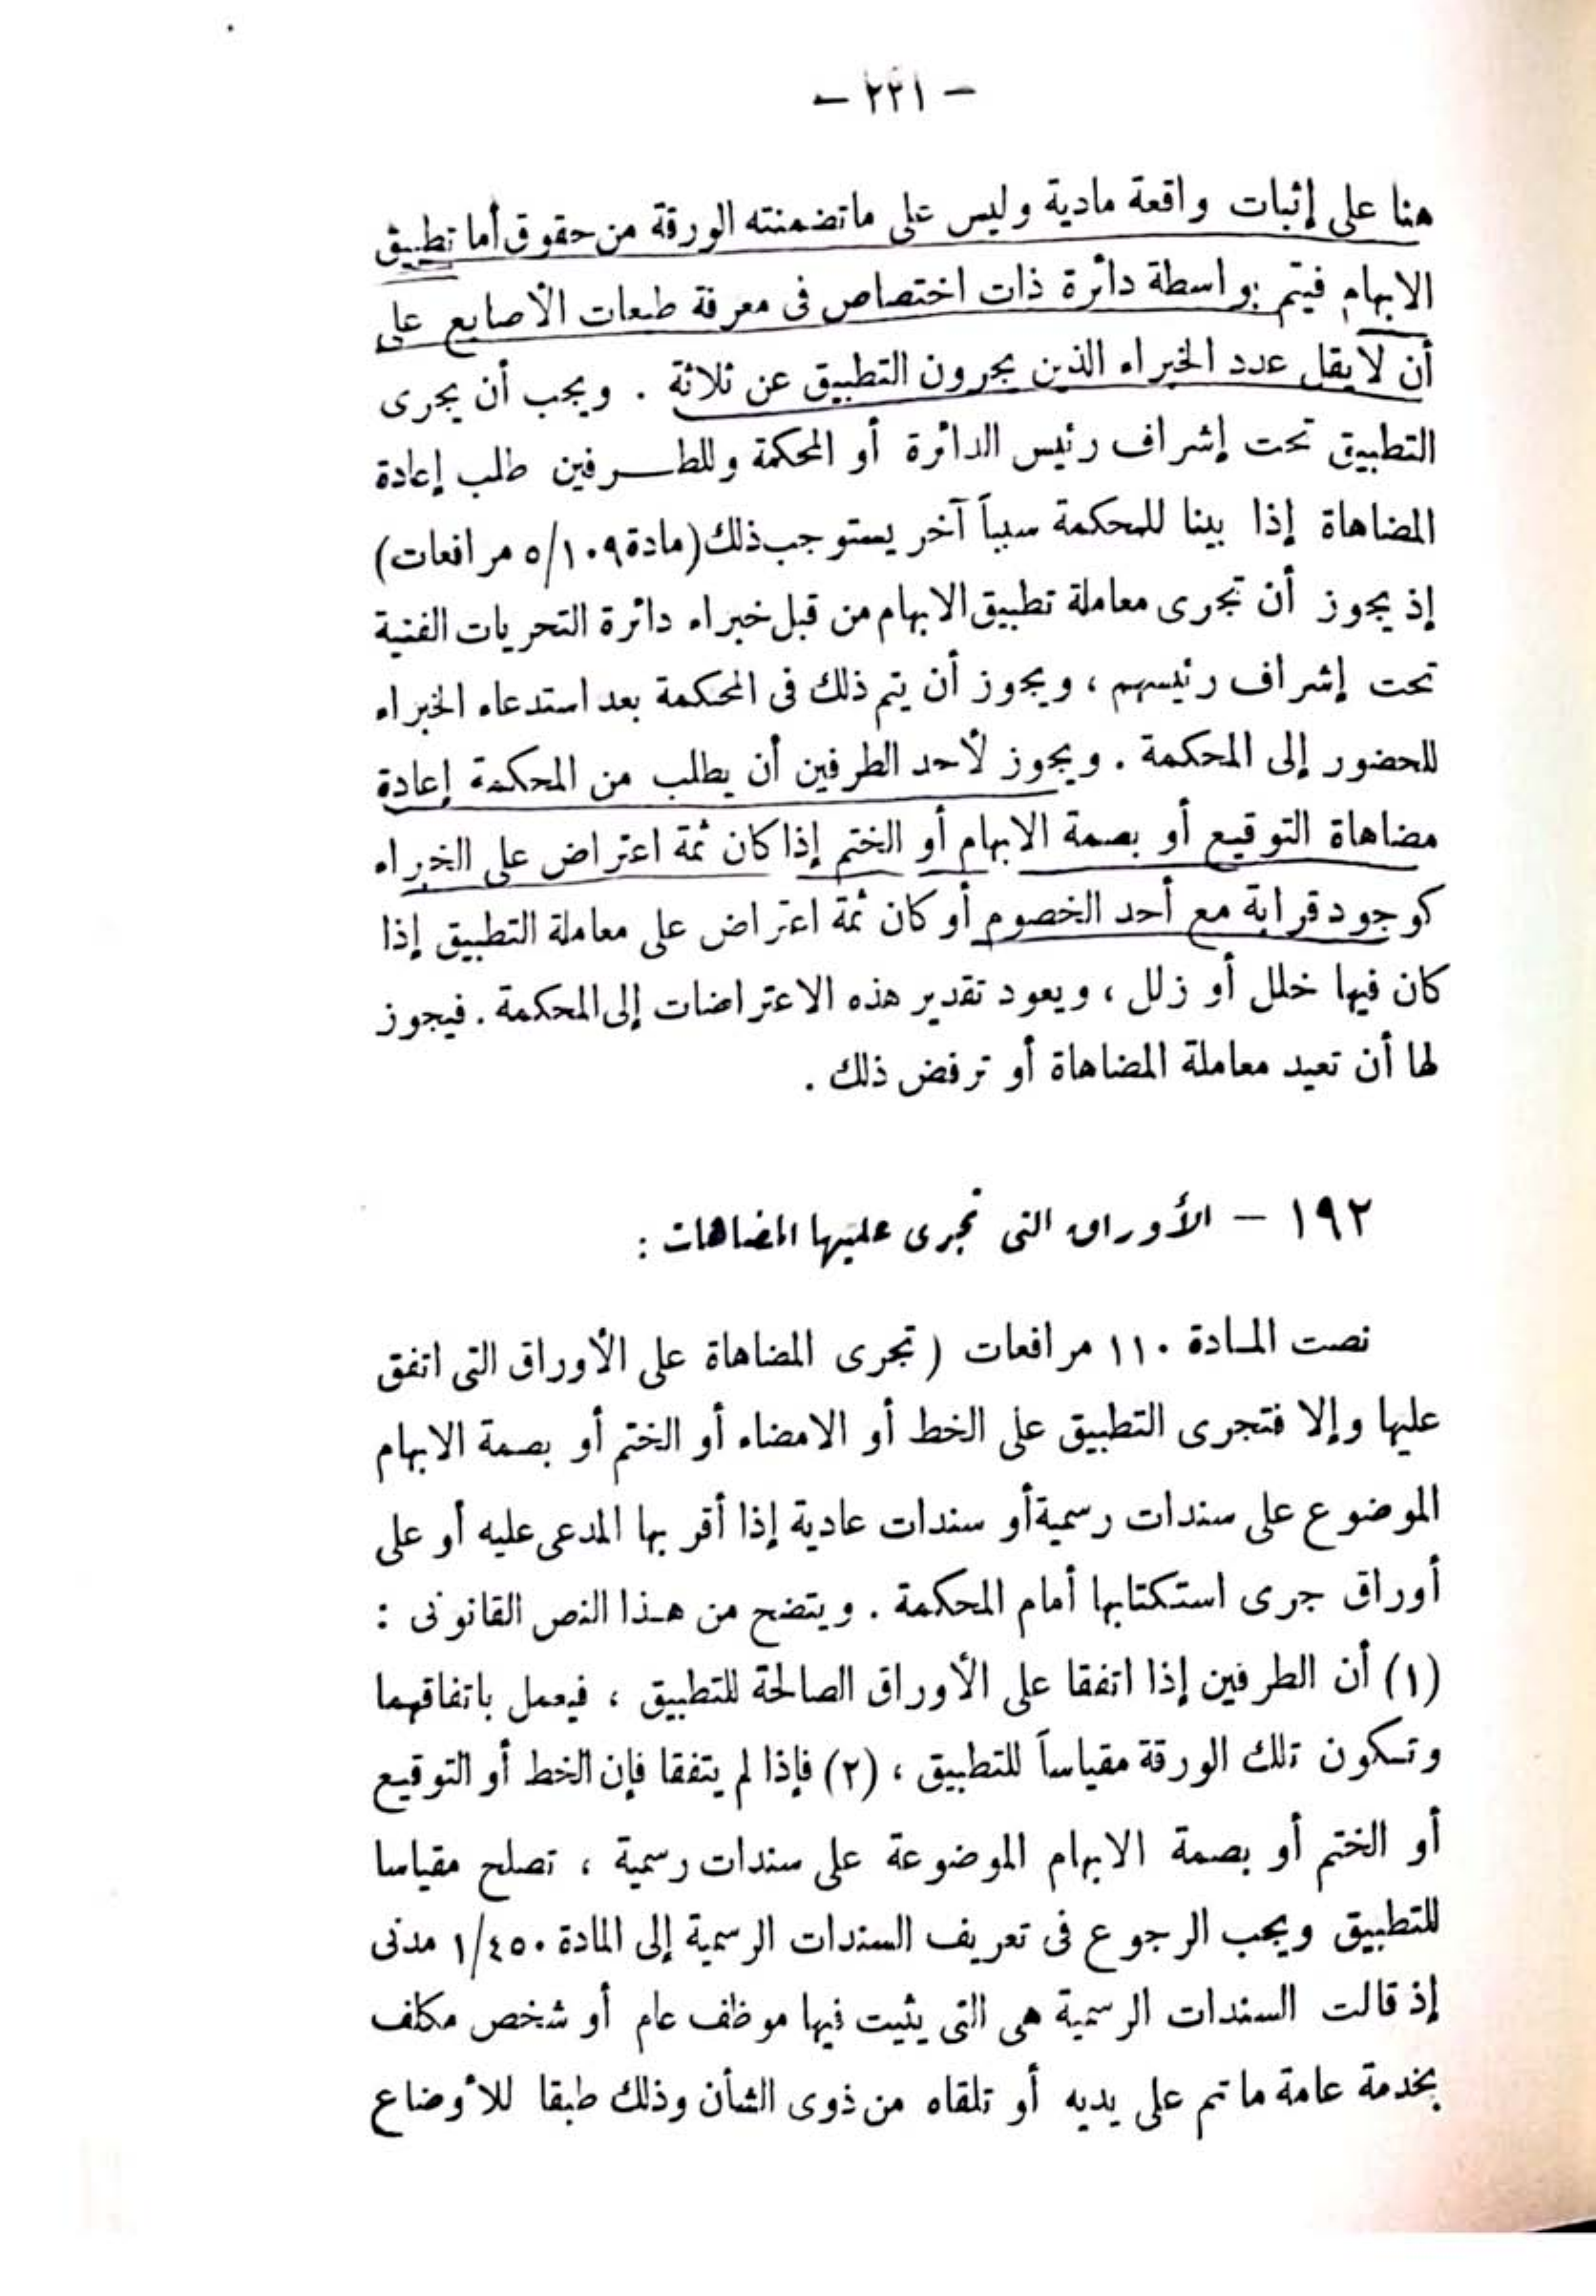 - ٢٢١ -
هنا على إثبات واقعة مادية وليس على ماتضمنته الورقة من حقوق أما تطبيق
الابهام فيتم بواسطة دائرة ذات اختصاص فى معرفة طبعات الأصابع على
أن لايقل عدد الخبراء الذين يجرون التطبيق عن ثلاثة . ويجب أن يجرى
التطبيق تحت إشراف رئيس الدائرة أو المحكمة وللطرفين طلب إعادة
المضاهاة إذا بينا للمحكمة سبباً آخر يستوجب ذلك (مادة ٥/١٠٩ مرافعات)
إذ يجوز أن تجرى معاملة تطبيق الابهام من قبل خبراء دائرة التحريات الفنية
تحت إشراف رئيسهم ، ويجوز أن يتم ذلك فى المحكمة بعد استدعاء الخبراء
للحضور إلى المحكمة . ويجوز لأحد الطرفين أن يطلب من المحكمة إعادة
مضاهاة التوقيع أو بصمة الابهام أو الختم إذا كان ثمة اعتراض على الخبراء
كوجود قرابة مع أحد الخصوم أو كان ثمة اعتراض على معاملة التطبيق إذا
كان فيها خلل أو زلل ، ويعود تقدير هذه الاعتراضات إلى المحكمة . فيجوز
لها أن تعيد معاملة المضاهاة أو ترفض ذلك .
١٩٢ - الأوراق التى تجرى عليها المضاهات :
نصت المادة ١١٠ مرافعات ( تجرى المضاهاة على الأوراق التى اتفق
عليها وإلا فتجرى التطبيق على الخط أو الامضاء أو الختم أو بصمة الابهام
الموضوع على سندات رسمية أو سندات عادية إذا أقر بها المدعى عليه أو على
أوراق جرى استكتابها أمام المحكمة . ويتضح من هذا النص القانونى :
(١) أن الطرفين إذا اتفقا على الأوراق الصالحة للتطبيق ، فيعمل باتفاقهما
وتكون تلك الورقة مقياساً للتطبيق ، (٢) فإذا لم يتفقا فإن الخط أو التوقيع
أو الختم أو بصمة الابهام الموضوعة على سندات رسمية ، تصلح مقياسا
للتطبيق ويجب الرجوع فى تعريف السندات الرسمية إلى المادة ١/٤٥٠ مدنى
إذ قالت السندات الرسمية هى التى يثبت فيها موظف عام أو شخص مكلف
بخدمة عامة ما تم على يديه أو تلقاه من ذوى الشأن وذلك طبقا للأوضاع